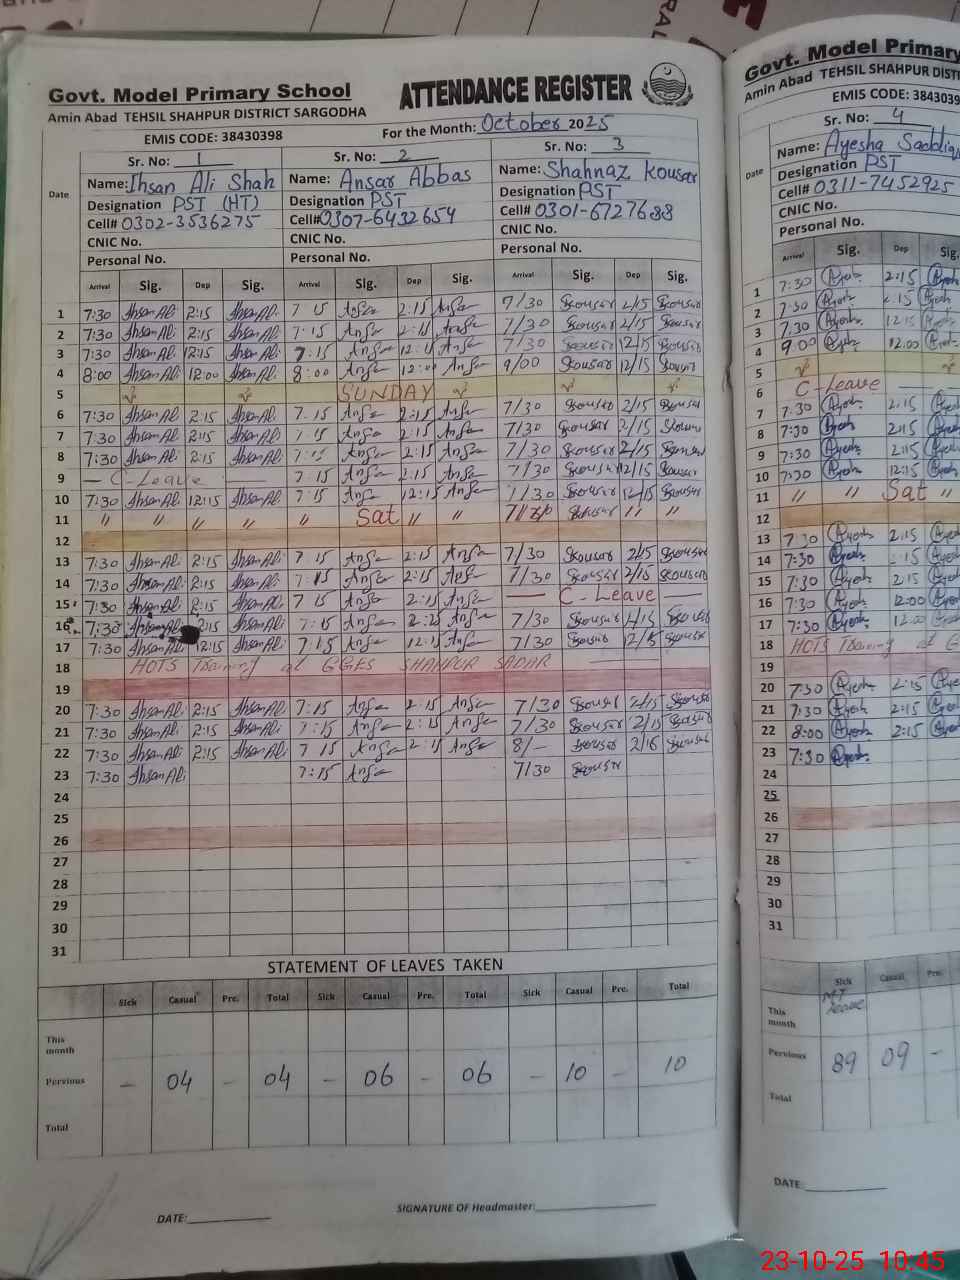 Govt. Model Primary School
ATTENDANCE REGISTER
Amin Abad TEHSIL SHAHPUR DISTRICT SARGODHA
EMIS CODE: 38430398
For the Month: October 2025
Date
Sr. No: 1 Sr. No: 2 Sr. No: 3
Name: Ihsan Ali Shah Name: Ansar Abbas Name: Shahnaz Kousar
Designation PST (HT) Designation PST Designation PST
Cell# 0302-3536275 Cell# 0307-6432654 Cell# 0301-6727688
CNIC No. CNIC No. CNIC No.
Personal No. Personal No. Personal No.
Arrival Sig. Dep Sig. Arrival Sig. Dep Sig. Arrival Sig. Dep Sig.
1 7:30 Ihsan Ali 2:15 Ihsan Ali 7 15 2:15 7/30 Kousar 2/15 Kousar
2 7:30 Ihsan Ali 2:15 Ihsan Ali 7:15 7/30 Kousar 2/15 Kousar
3 7:30 Ihsan Ali 12:15 Ihsan Ali 7:15 7/30 Kousar 12/15 Kousar
4 8:00 Ihsan Ali 12:00 Ihsan Ali 8:00 12:00 9/00 Kousar 12/15
5 SUNDAY
6 7:30 Ihsan Ali 2:15 Ihsan Ali 7:15 2:15 7/30 Kousar 2/15 Kousar
7 7:30 Ihsan Ali 2:15 Ihsan Ali 7:15 2:15 7/30 Kousar 2/15
8 7:30 Ihsan Ali 2:15 Ihsan Ali 7:15 2:15 7/30 Kousar 2/15
9 — C-Leave 7 15 2:15 7/30 Kousar 12/15 Kousar
10 7:30 Ihsan Ali 12:15 Ihsan Ali 7:15 12:15 7/30 Kousar 12/15 Kousar
11 " " " " Sat " " Kousar " "
12
13 7:30 Ihsan Ali 2:15 Ihsan Ali 7 15 2:15 7/30 Kousar 2/15 Kousar
14 7:30 Ihsan Ali 2:15 Ihsan Ali 7:15 2:15 7/30 Kousar 2/15 Kousar
15 7:30 Ihsan Ali 2:15 Ihsan Ali 7 15 2:15 — C-Leave —
16 7:30 Ihsan Ali 2:15 Ihsan Ali 7:15 7/30 Kousar Kousar
17 7:30 Ihsan Ali 12:15 Ihsan Ali 7:15 12:15 7/30 Kousar 12/15 Kousar
18 HOTS Training at GGES SHAHPUR SADAR
19
20 7:30 Ihsan Ali 2:15 Ihsan Ali 7:15 2:15 7/30 Kousar 2/15 Kousar
21 7:30 Ihsan Ali 2:15 Ihsan Ali 7:15 2:15 7/30 Kousar 2/15 Kousar
22 7:30 Ihsan Ali 2:15 Ihsan Ali 7 15 2:15 8/- Kousar Kousar
23 7:30 Ihsan Ali 7:15 7/30 Kousar
24
25
26
27
28
29
30
31
STATEMENT OF LEAVES TAKEN
Sick Casual Pre. Total Sick Casual Pre. Total Sick Casual Pre. Total
This month
Pervious - 04 - 04 - 06 - 06 - 10 - 10
Total
DATE:
SIGNATURE OF Headmaster:
Govt. Model Primary
Amin Abad TEHSIL SHAHPUR
EMIS CODE:
Date
Sr. No: 4
Name: Ayesha
Designation PST
Cell# 0311-7452925
CNIC No.
Personal No.
Arrival Sig. Dep Sig.
1 7:30 2:15
2 7:30 2:15
3 7:30 12:15
4 9:00 12:00
5
6 C-Leave
7 7:30 2:15
8 7:30 2:15
9 7:30 2:15
10 7:30 12:15
11 " " Sat "
12
13 7:30 2:15
14 7:30 :15
15 7:30 2:15
16 7:30 12:00
17 7:30 12:00
18 HOTS Training at G
19
20 7:30 2:15
21 7:30 2:15
22 8:00 2:15
23 7:30
24
25
26
27
28
29
30
31
Sick Casual Pre.
This month
Pervious 89 09 -
Total
DATE:
23-10-25 10:45